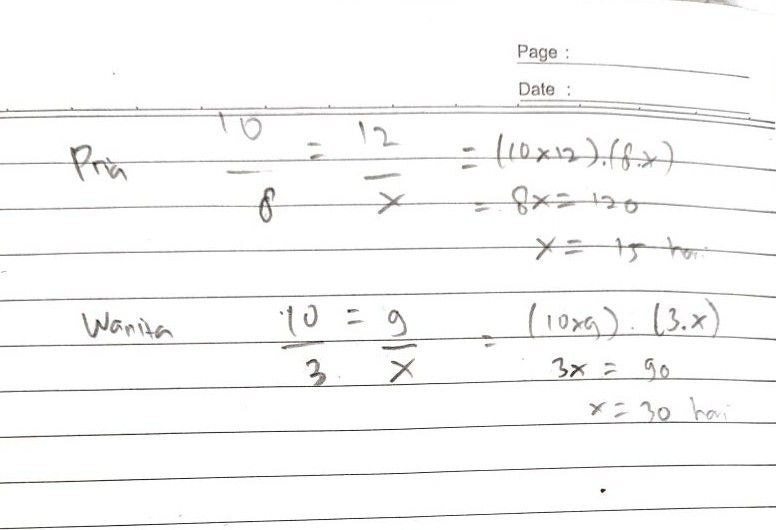 Page :
Date :
Pria 10/8 = 12/x = (10x12).(8.x)
= 8x = 120
x = 15 hari
Wanita 10/3 = 9/x = (10x9).(3.x)
3x = 90
x = 30 hari